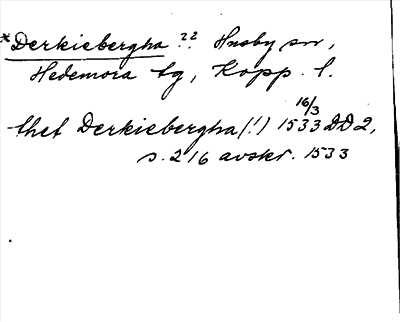 *Derkiebergha ?? Husby sn,
Hedemora tg, Kopp. l.
16/3
thet Derkiebergha (!) 1533 DD 2,
s. 216 avskr. 1533